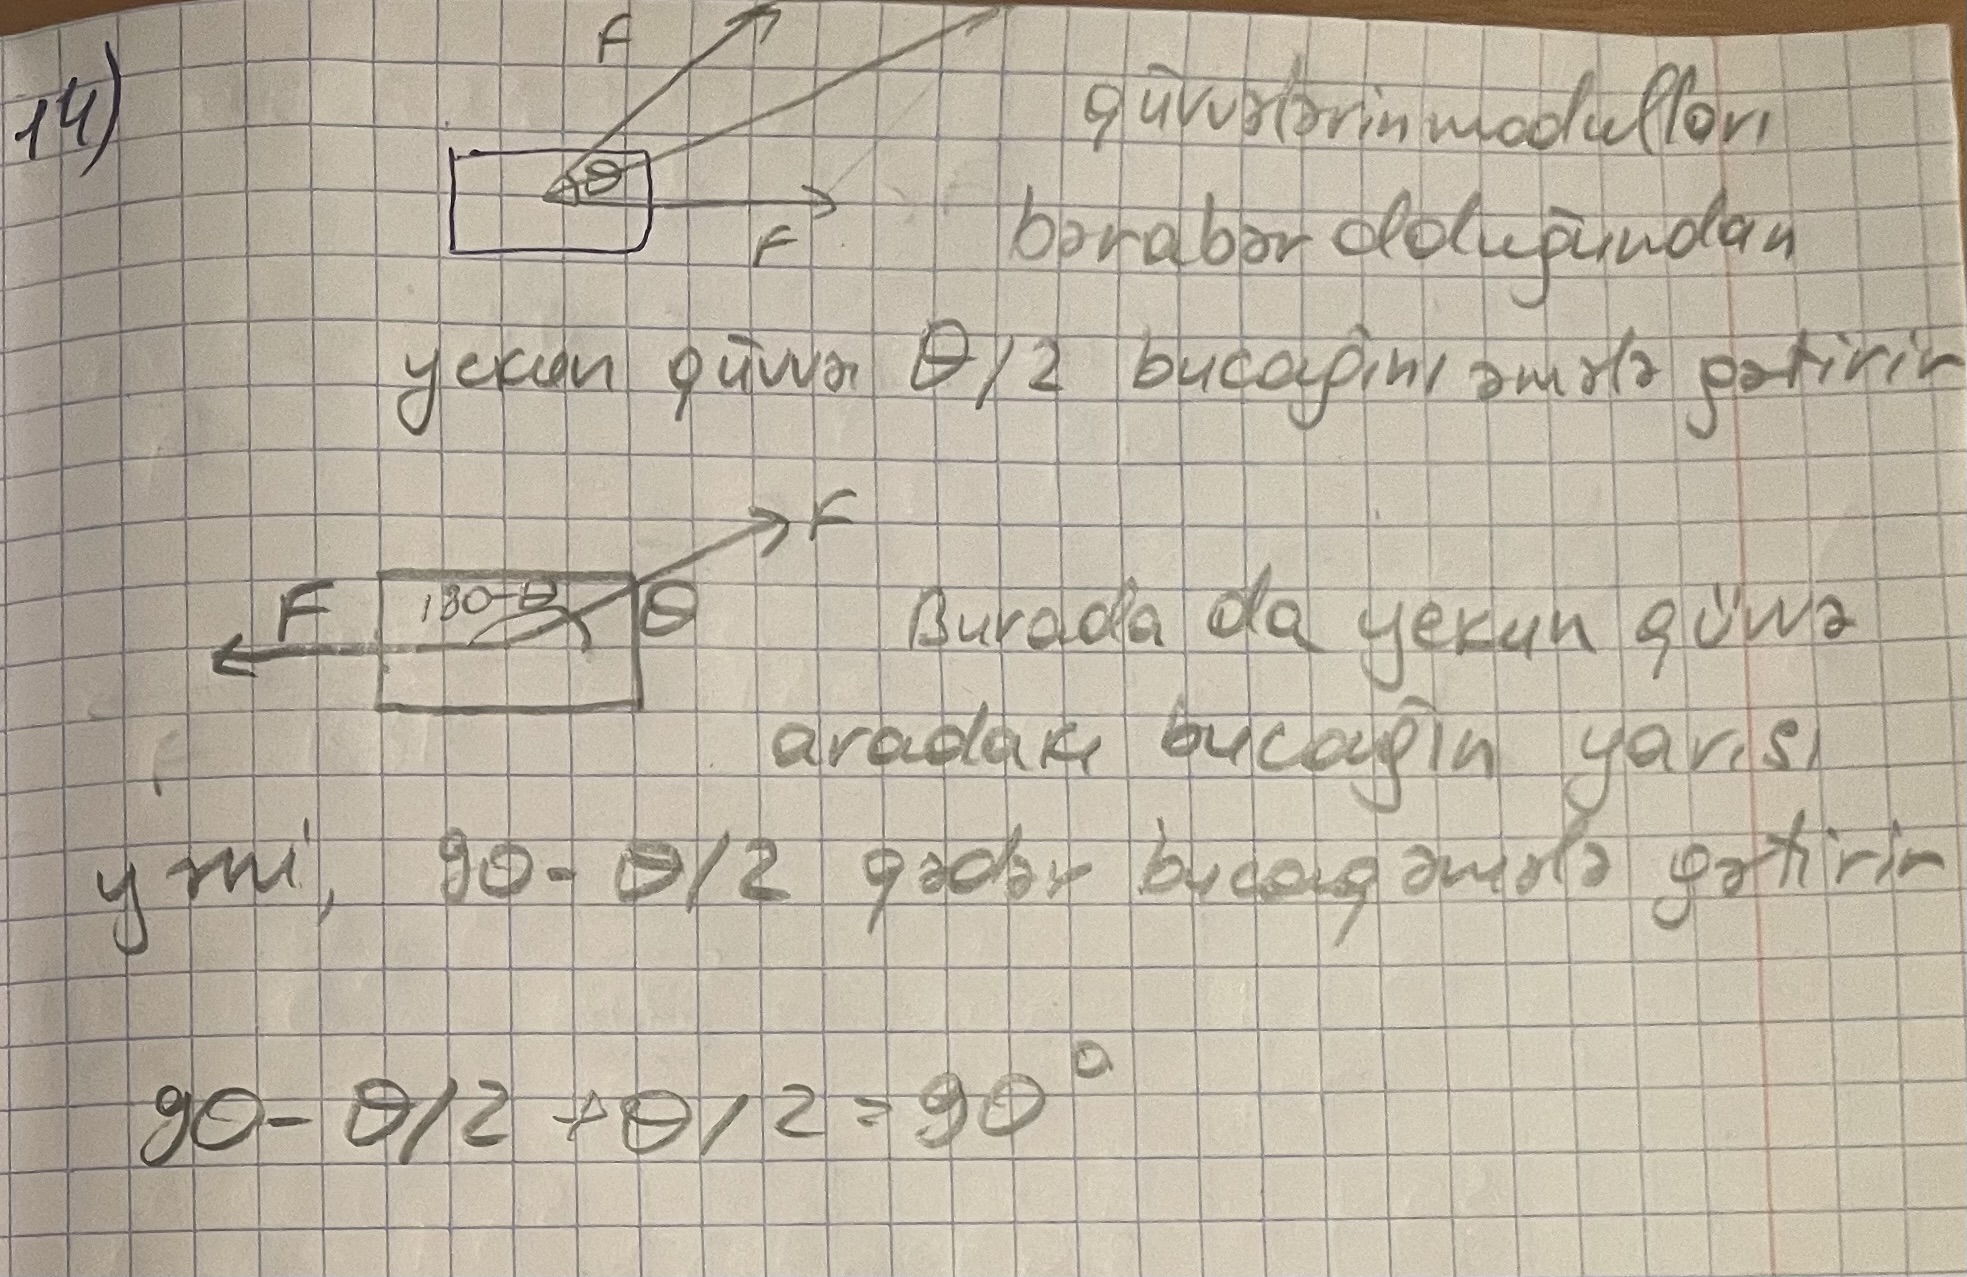 14)
F
θ
F
qüvvələrin modulları
bərabər olduğundan
yekun qüvvə θ/2 bucağını əmələ gətirir
F
F
180-θ
θ
Burada da yekun qüvvə
aradakı bucağın yarısı
yəni, 90-θ/2 qədər bucaq əmələ gətirir
90-θ/2+θ/2=90°